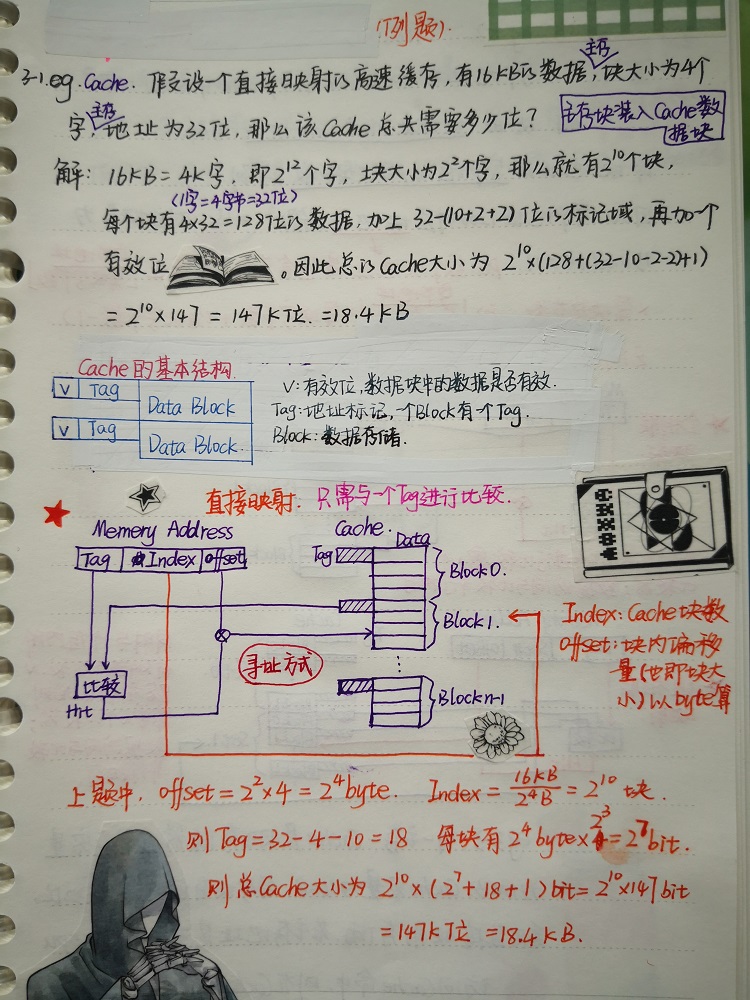 (例题).
主存
3-1.eg.Cache. 假设一个直接映射的高速缓存,有16KB的数据,块大小为4个
主存
字,地址为32位,那么该Cache总共需要多少位?
主存块装入Cache数
据块
解: 16KB=4K字,即2¹²个字,块大小为2²个字,那么就有2¹⁰个块,
(1字=4字节=32位)
每个块有4×32=128位的数据,加上 32-(10+2+2)位的标记域,再加一个
有效位 。因此总的Cache大小为 2¹⁰×(128+(32-10-2-2)+1)
=2¹⁰×147=147K位.=18.4KB
Cache的基本结构
V Tag Data Block
V Tag Data Block
V:有效位,数据块中的数据是否有效.
Tag:地址标记,一个Block有一个Tag.
Block:数据存储.
直接映射. 只需与一个Tag进行比较.
Memory Address
Tag Index offset
Cache.
Data
Tag
Block0.
Block1.
⋮
Blockn-1
比较
Hit
寻址方式
Index:Cache块数
offset:块内偏移
量(也即块大
小)以byte算
上题中, offset=2²×4=2⁴byte. Index=16KB/2⁴B=2¹⁰块.
则Tag=32-4-10=18 每块有2⁴byte×2³=2⁷bit.
则总Cache大小为 2¹⁰×(2⁷+18+1)bit=2¹⁰×147bit
=147K位 =18.4KB.